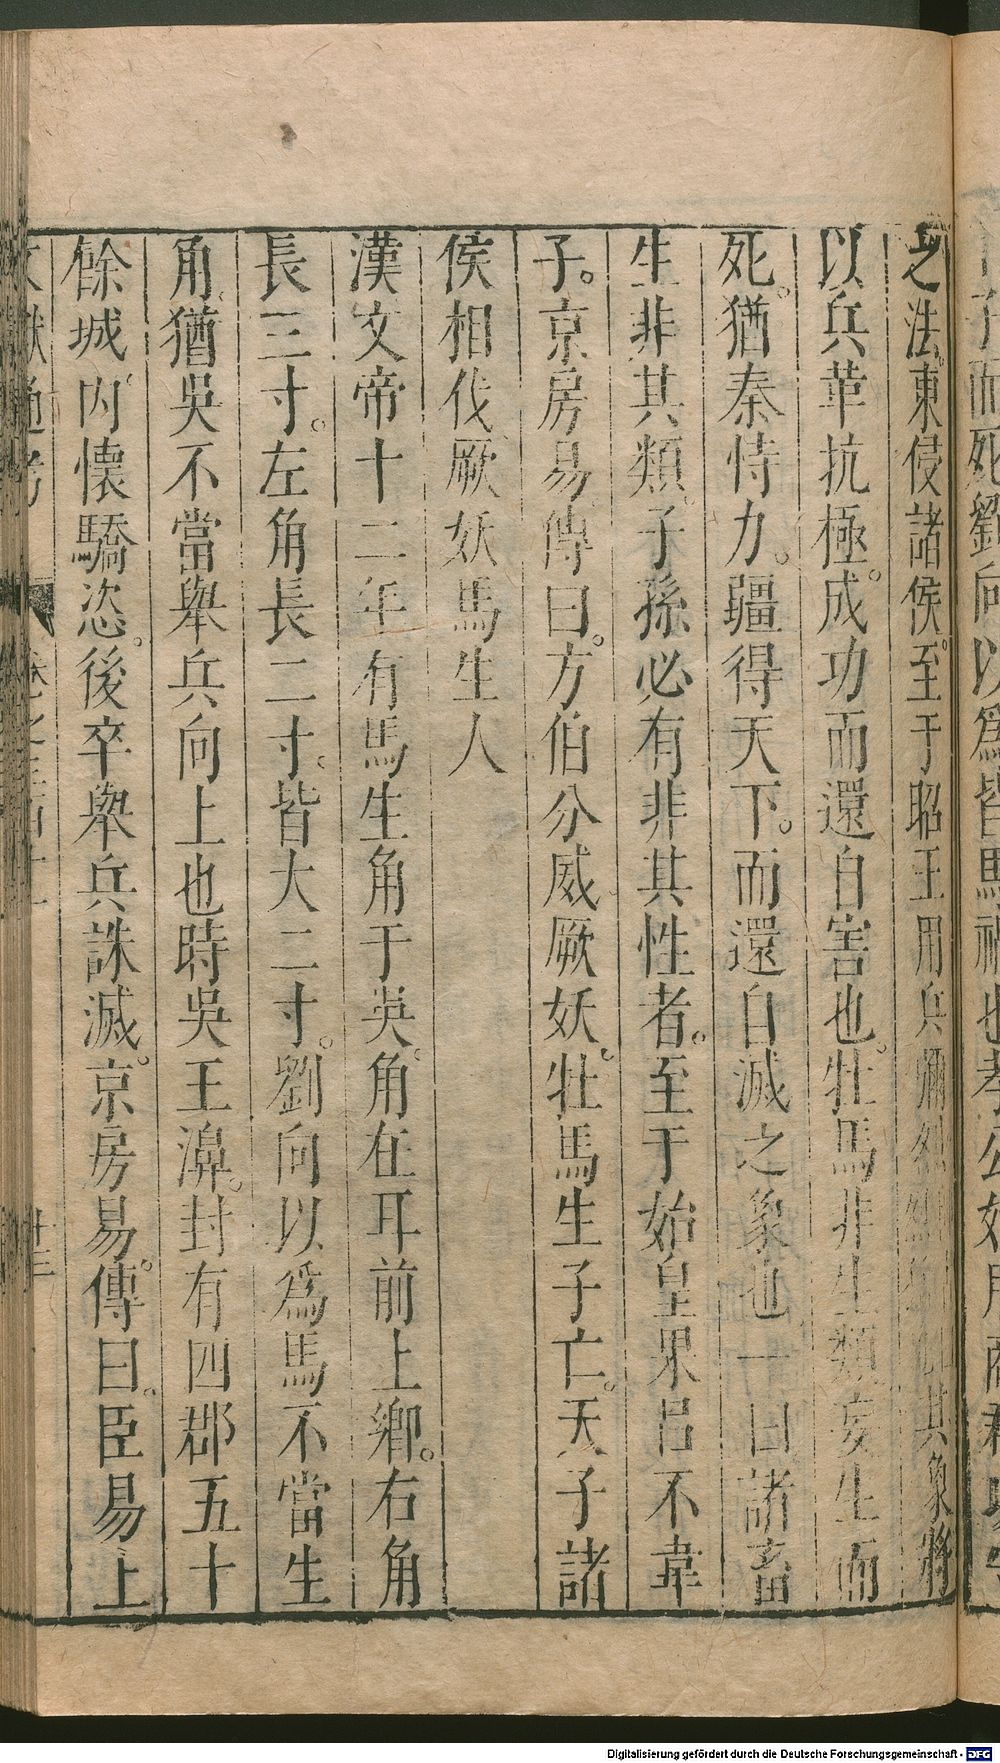 之法。東侵諸侯。至于昭王用兵彌烈其象將
以兵革抗極。成功而還自害也。牡馬非生類妄生而
死。猶秦恃力。疆得天下。而還自滅之象也一曰諸畜
生非其類。子孫必有非其性者。至于始皇果呂不韋
子。京房易傳曰。方伯分威厥妖。牡馬生子亡。天子諸
侯相伐厥妖馬生人
漢文帝十二年有馬生角于吳。角在耳前上鄉。右角
長三寸。左角長二寸。皆大二寸。劉向以爲馬不當生
角。猶吳不當舉兵向上也時吳王濞。封有四郡五十
餘城。内懷驕恣。後卒舉兵誅滅。京房易。傳曰。臣易上
Digitalisierung gefördert durch die Deutsche Forschungsgemeinschaft - DFG